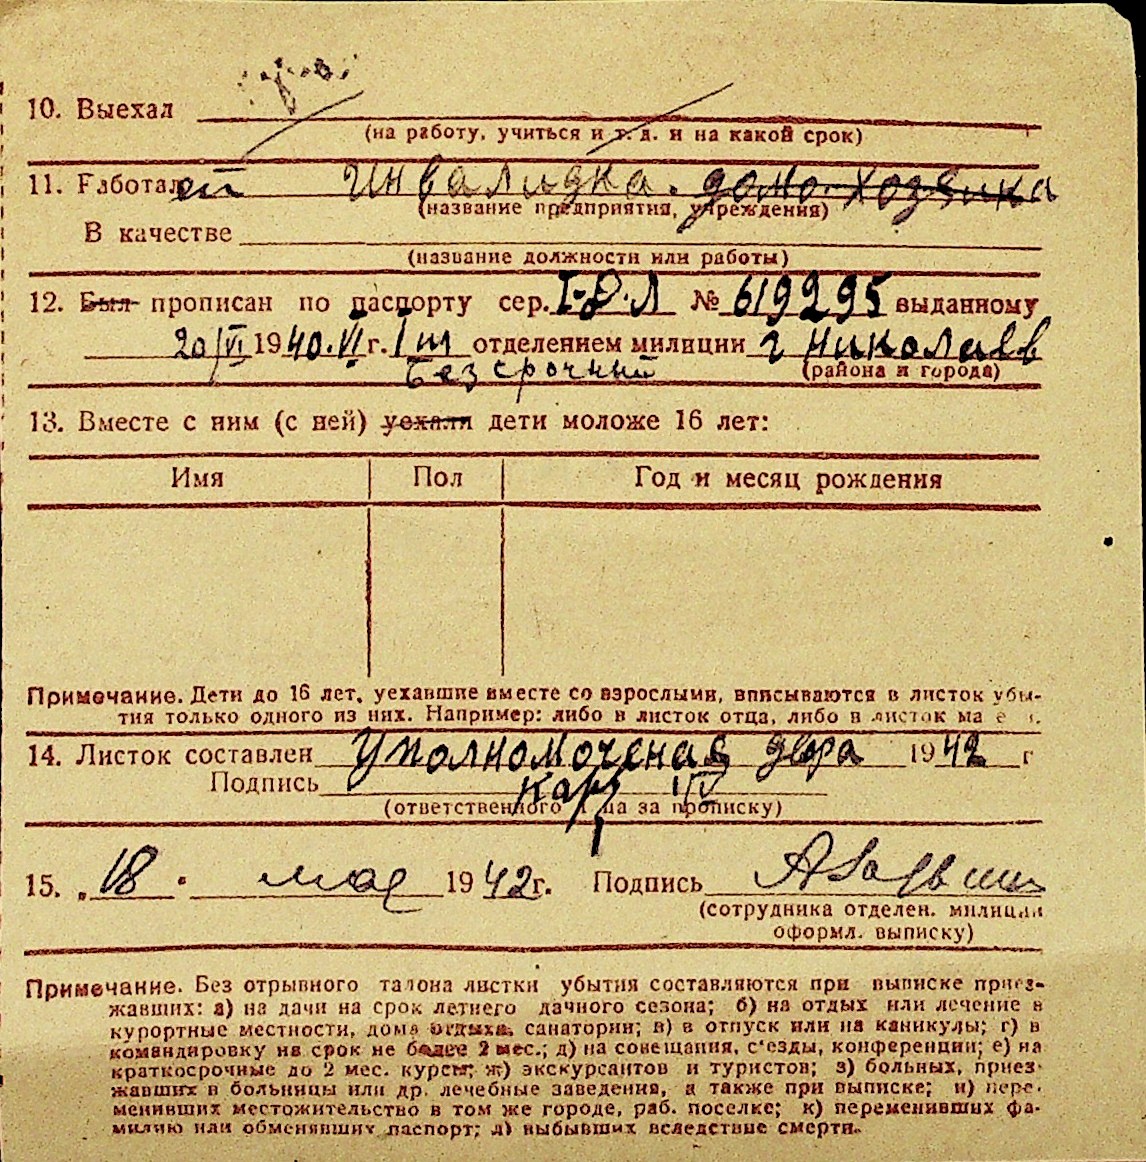 10. Выехал
(на работу, учиться и т. д. и на какой срок)
11. Работает Инвалидка. домо-хозяйка
(название предприятия, учреждения)
В качестве
(название должности или работы)
12. Был прописан по паспорту сер. I-ОЛ № 619295 выданному
20/VI 1940.VI г. I м отделением милиции г Николаев
Безсрочный (района и города)
13. Вместе с ним (с ней) уехали дети моложе 16 лет:
Имя Пол Год и месяц рождения
Примечание. Дети до 16 лет, уехавшие вместе со взрослыми, вписываются в листок убы-
тия только одного из них. Например: либо в листок отца, либо в листок
14. Листок составлен Уполномоченая двора 1942 г
Подпись
(ответственного за прописку)
15. „18 . мая 1942 г. Подпись
(сотрудника отделен. милиции
оформл. выписку)
Примечание. Без отрывного талона листки убытия составляются при выписке приез-
жавших: а) на дачи на срок летнего дачного сезона; б) на отдых или лечение в
курортные местности, дома отдыха, санатории; в) в отпуск или на каникулы; г) в
командировку на срок не более 2 мес.; д) на совещания, с'езды, конференции; е) на
краткосрочные до 2 мес. курсы; ж) экскурсантов и туристов; з) больных, приез-
жавших в больницы или др. лечебные заведения, а также при выписке; и) пере-
менивших местожительство в том же городе, раб. поселке; к) переменивших фа-
милию или обменявших паспорт; л) выбывших вследствие смерти.